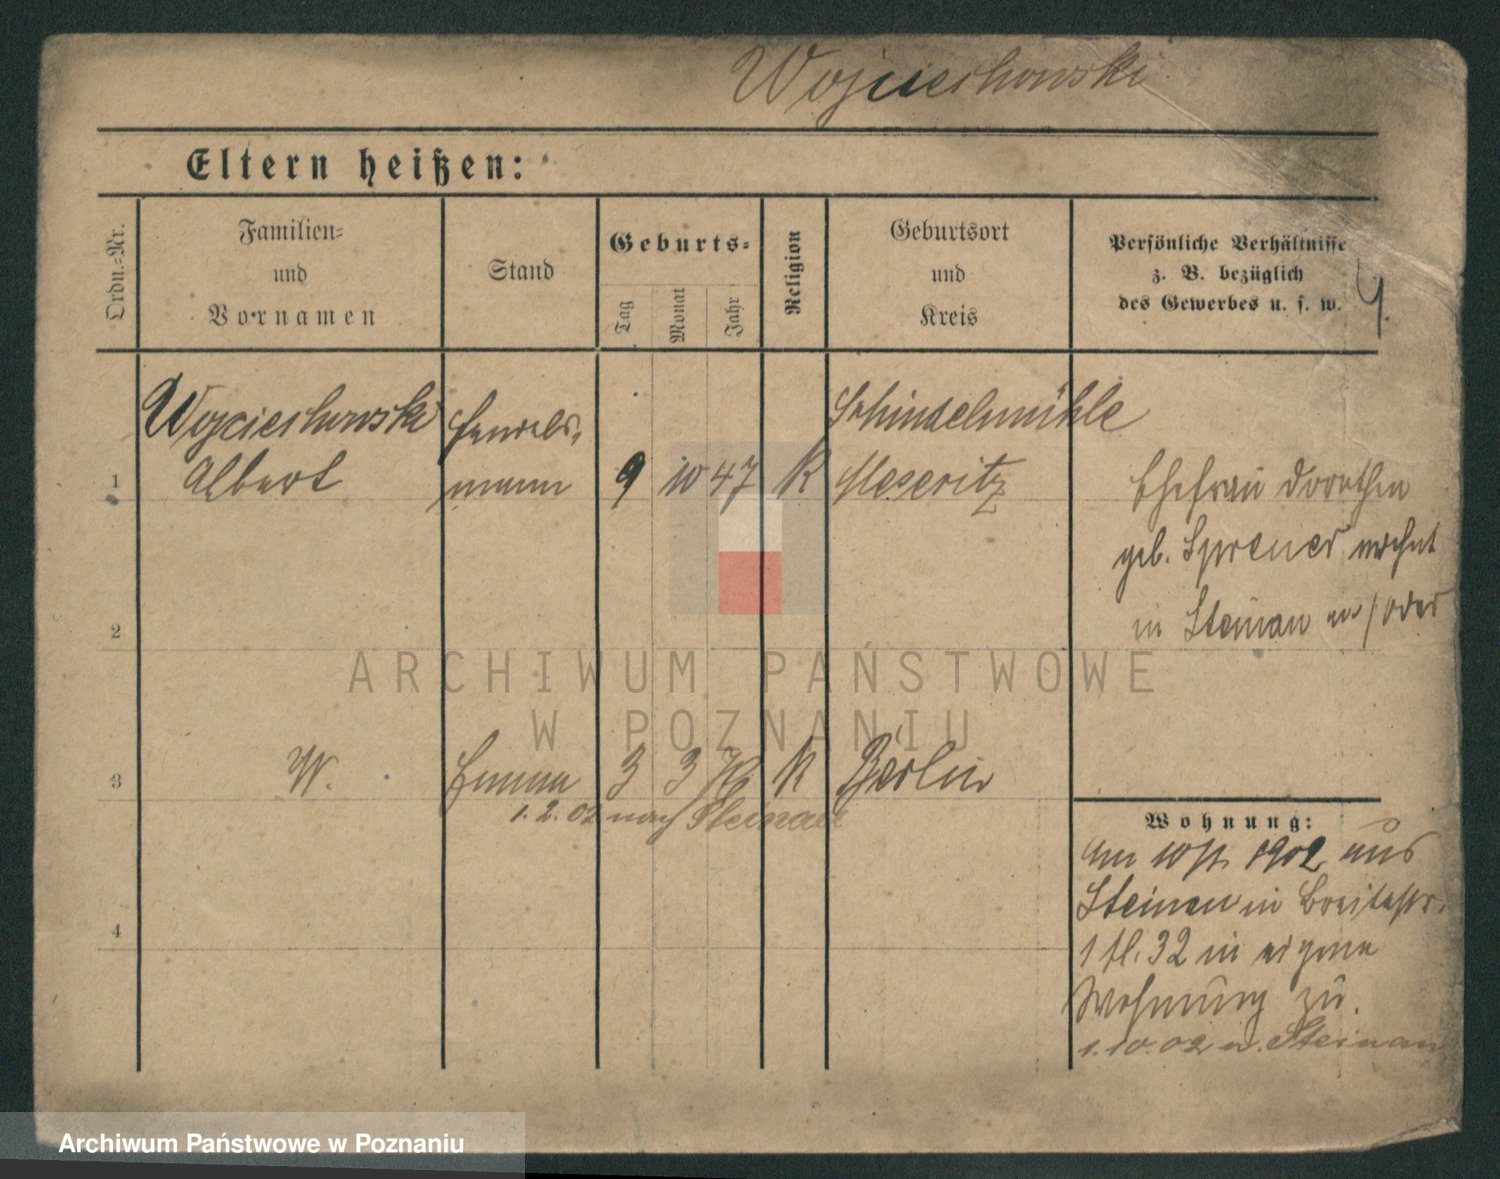 Wojciechowski
Eltern heißen:
Ordn.-Nr.
Familien-
und
Vornamen
Stand
Geburts-
Tag
Monat
Jahr
Religion
Geburtsort
und
Kreis
Persönliche Verhältnisse
z. B. bezüglich
des Gewerbes u. s. w.
1
Wojciechowski
Albert
Handels-
mann
9 10 47 K
Schindelmühle
Meseritz
Ehefrau Dorothea
geb. wohnt
in Steinau a/Oder
2
3
W. Emma 3 3 76 K Berlin
1.2.02 nach Steinau
4
Wohnung:
Am 10/7. 1902 aus
Steinau in Breitestr.
1 bl. 32 in eigene
Wohnung zu.
1.10.02 n. Steinau
ARCHIWUM PAŃSTWOWE
W POZNANIU
Archiwum Państwowe w Poznaniu